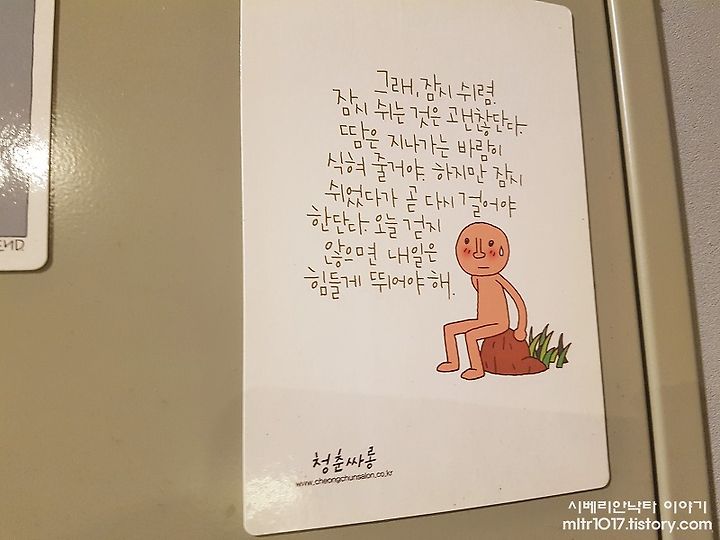 END
그래, 잠시 쉬렴.
잠시 쉬는 것은 괜찮단다.
땀은 지나가는 바람이
식혀 줄거야. 하지만 잠시
쉬었다가 곧 다시 걸어야
한단다. 오늘 걷지
않으면 내일은
힘들게 뛰어야 해.
청춘싸롱
www.cheongchunsalon.co.kr
시베리안낙타 이야기
mltr1017.tistory.com